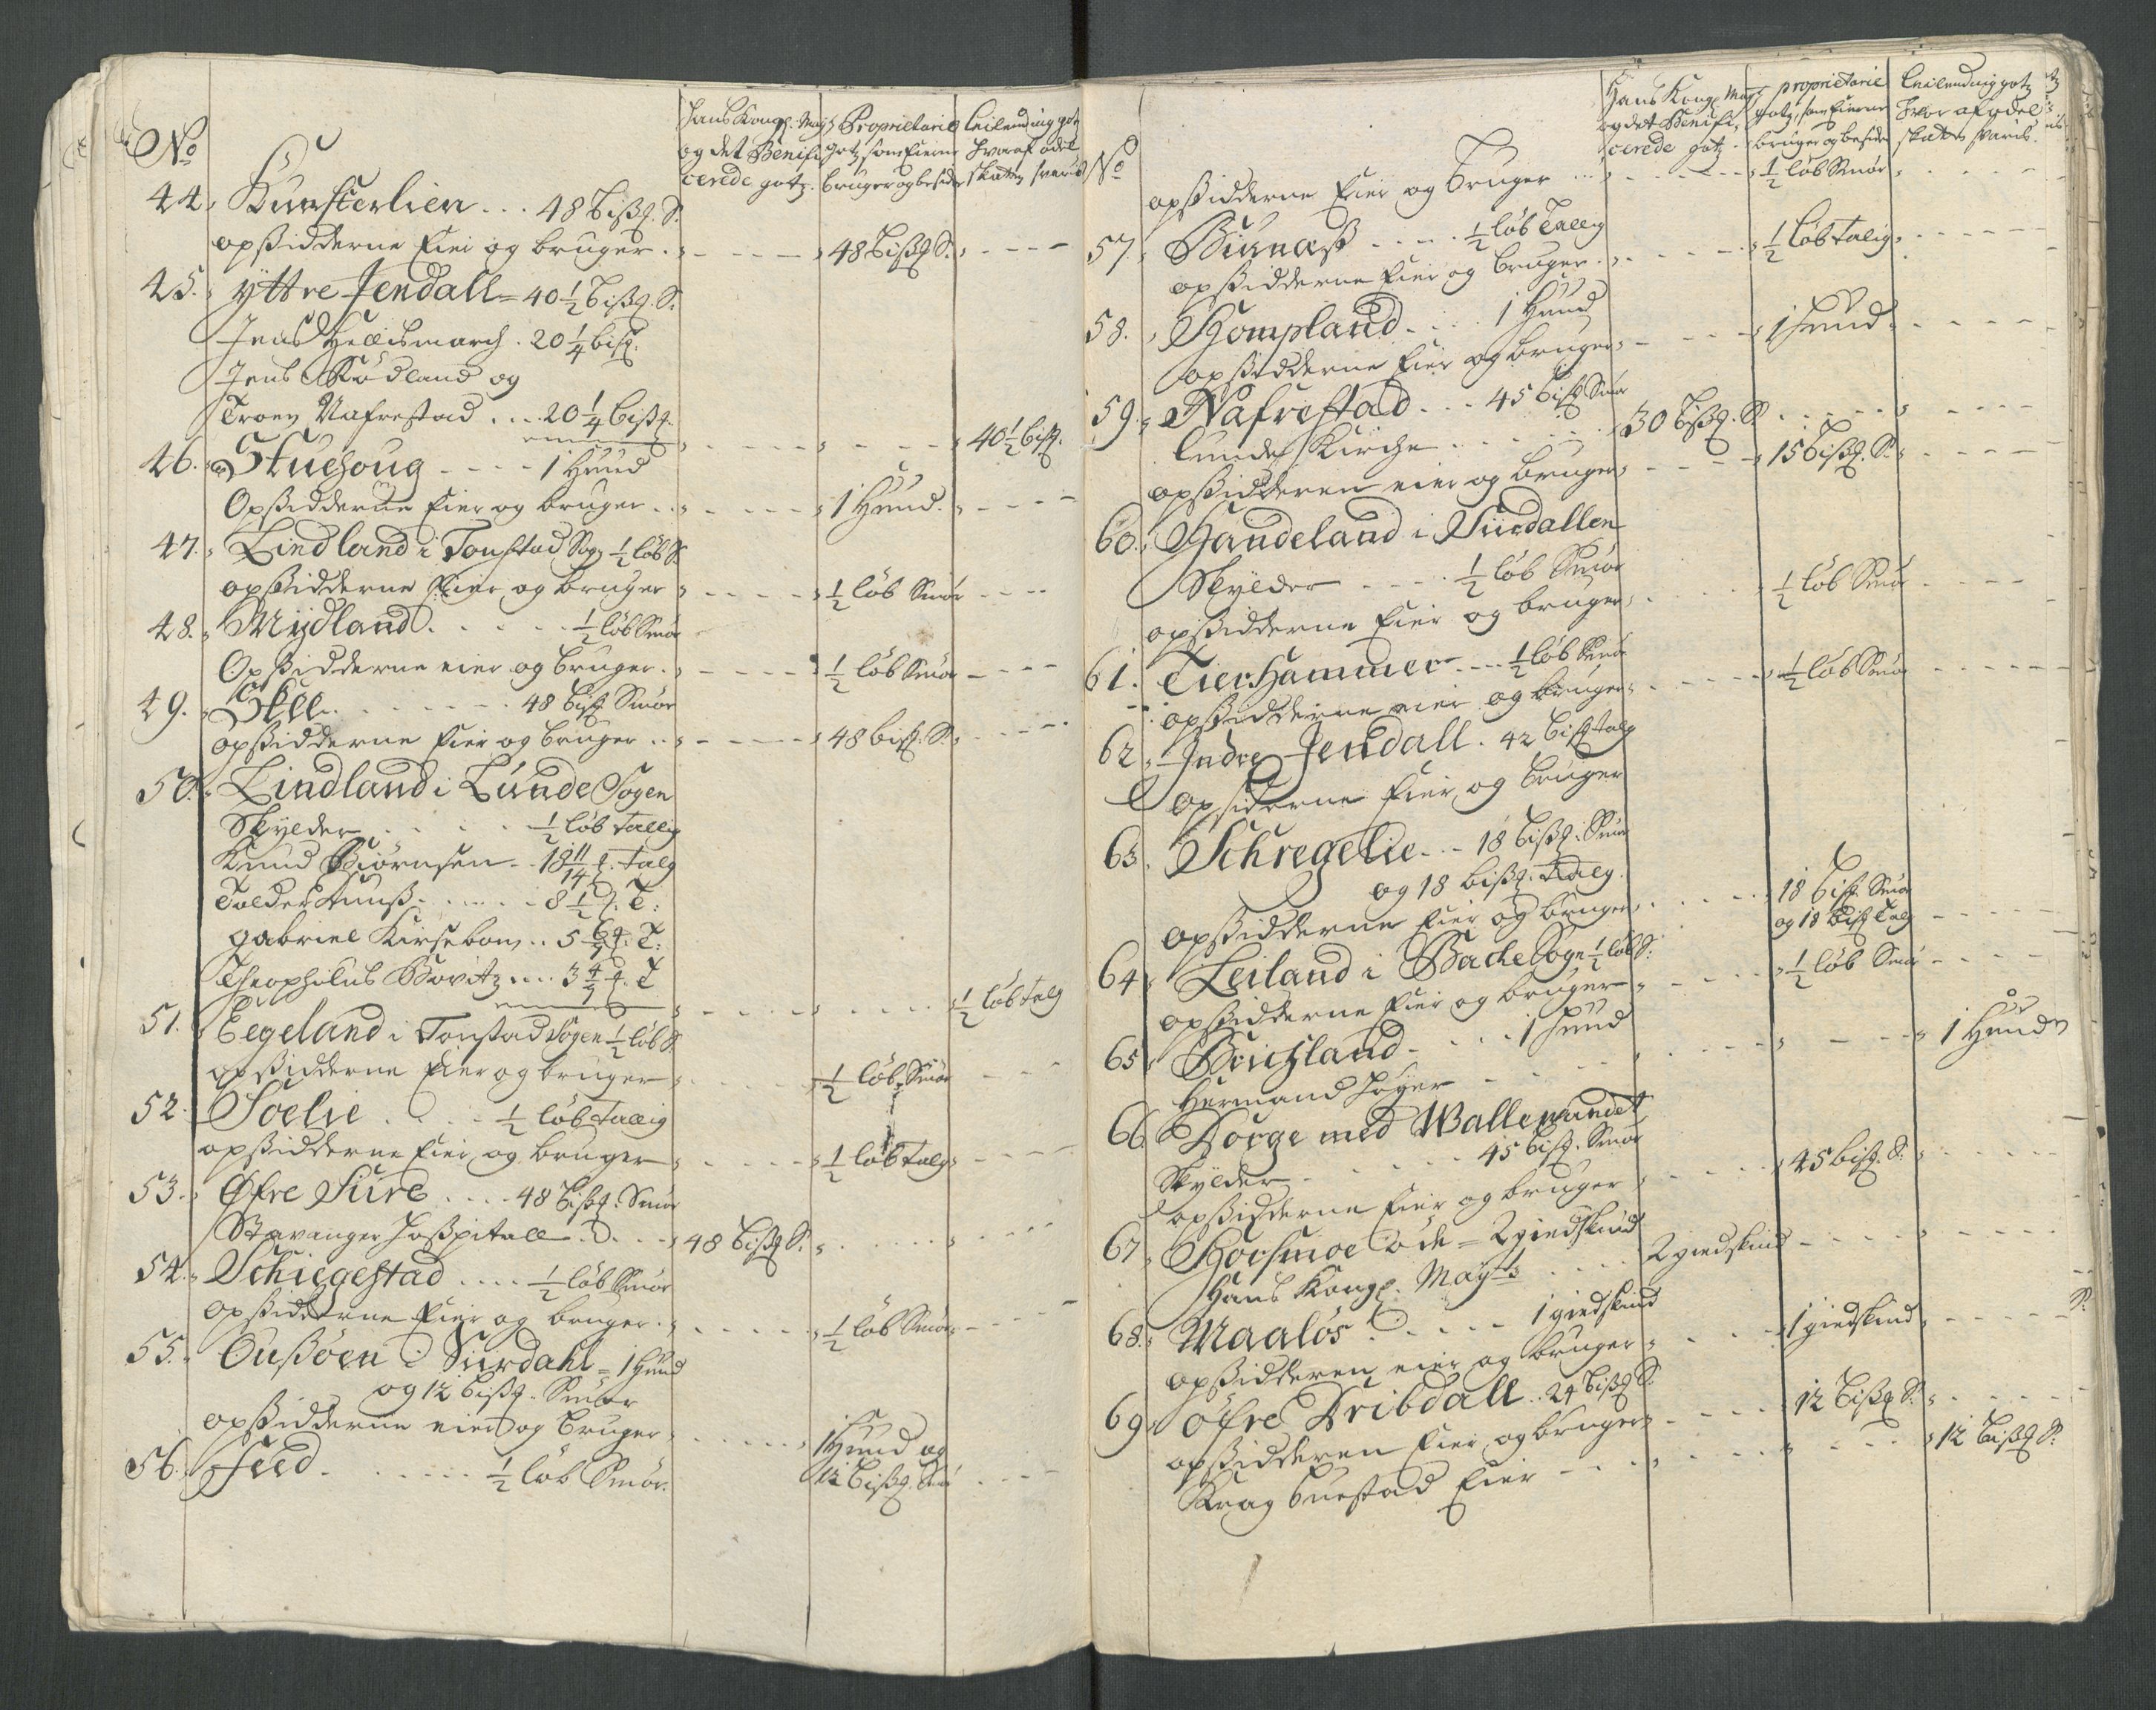 No
Hans Kongl. Mayts og det Benificerede gotz.
Proprietarie gotz som Eierne bruger og besider
Leilending gotz hvoraf odel skatten svaris
44. Kunsterlien . . . 48 bißp. S.
opsidderne Eier og bruger . 48 bißp S.
45. Yttre Jendall = 40 1/2 bißp. S.
Jens Hellismarch . 20 1/4 bißp.
Jens Rödland og
Troen Nafrestad . . . 20 1/4 bißp.
40 1/2 bißp.
46. Stuehoug - - - - 1 Huud
Opsidderne Eier og bruger . . 1 Huud.
47. Lindland i Tonstad Sogn 1/2 löb S.
opsidderne Eier og bruger 1/2 löb Smör
48. Mydland . . . . . 1/2 löb Smör
Opsidderne eier og bruger . 1/2 löb Smör
49. Skll . . . . . . 48 bißp Smör
opsidderne Eier og bruger . . 48 bißp. S.
50. Lindland i Lunde Sogen
Skylder . . . . . 1/2 löb tallig
Knud Biörnsen . . 18 11/14 p. talg
Tolder Nunß . . . . . 8 1/2 p. T:
Gabriel Kirsebom . . 5 6/7 p. T:
Theophilus Bowitz . . . 3 4/7 p. T
1/2 löb talg
51. Eegeland i Tonstad Sogen 1/2 löb S.
opsidderne Eier og bruger 1/2 löb Smör
52. Soelie . . . . 1/2 löb tallig
opsidderne Eier og bruger 1/2 löb talg
53. Öfre Sire . . . . 48 bißp. Smör
Stavanger Hoßpitall . . . 48 bißp S.
54. Schiegestad . . . . 1/2 löb Smör
opsidderne Eier og bruger . 1/2 löb Smör
55. Oußöen i Siirdahl = 1 Huud
og 12 bißp. Smör
opsidderne eier og bruger 1 Huud og
12 bißp. Smör
56. Feed . . . . . . 1/2 löb Smör.
No
Hans Kongl. Mayts og det Benificerede gotz
proprietarie gotz, som Eierne bruger og besider
Leilending gotz hvor af odel skatten svaris.
opsidderne Eier og bruger . . . 1/2 löb Smör
57. Biunæß . . . . 1/2 löb Tallig
opsidderne Eier og bruger . . 1/2 löb talig
58. Hompland . . . 1 Huud
opsidderne Eier og bruger 1 Huud
59. Nafrestad . . . 45 bißp Smör
Lunde Kirche . . . . . 30 bißp. S.
opsidderen eier og bruger 15 bißp. S.
60. Handeland i Siirdallen
Skylder - - - . 1/2 löb Smör
opsidderne Eier og bruger 1/2 löb Smör
61. Tiershammer . . . . 1/2 löb Smör
opsidderne eier og bruger 1/2 löb Smör
62. Indre Jendall . 42 bißp talg
opsidderne Eier og bruger
63. Schregelie . . . 18 bißp. Smör
og 18 bißp. talg.
opsidderne Eier og bruger 18 bißp. Smör
og 18 bißp Talg
64. Leiland i Backe Sogn 1/2 löb S.
opsidderne Eier og bruger 1/2 löb Smör
65. Birchland . . . . 1 Huud
Hermand Höyer . . . . 1 Huud
66. Dorge med Wallevandet
Skylder . . . . . . 45 bißp. Smör
opsidderne Eier og bruger 45 bißp. S:
67. Horsmoe öde = 2 giedskind
Hans Kongl. Mayts . . . . 2 giedskind
68. Maalös . . . . . 1 giedskind
opsidderen eier og bruger 1 giedskind
69. Öfre Dribdall . . 24 bißp. S.
opsidderen Eier og bruger 12 bißp S.
Krag Euestad Eier . . . 12 bißp S.